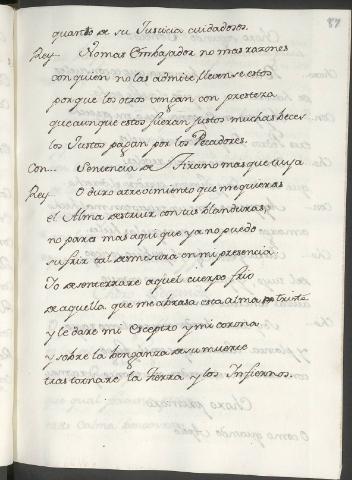 87
quanto de su Justicia cuidadosos.
Rey... No mas Embajador no mas razones
con quien no las admite llevense estos
por que los otros vengan con presteza
que aunque estos fueran justos muchas beces
los Justos pagan por los Pecadores.
Con... Sentencia de Tirano mas que tuya
Rey... O duro atrevimiento que me quieras
el Alma destruir con tus blanduras,
no pares mas aqui que ya no puedo
sufrir tal desmesura en mi presencia.
Yo desenterrare aquel cuerpo frio
de aquella que me abrasa esta alma triste
y le dare mi Esceptro y mi corona
y sobre la benganza de su muerte
trastornare la Tierra y los Infiernos.